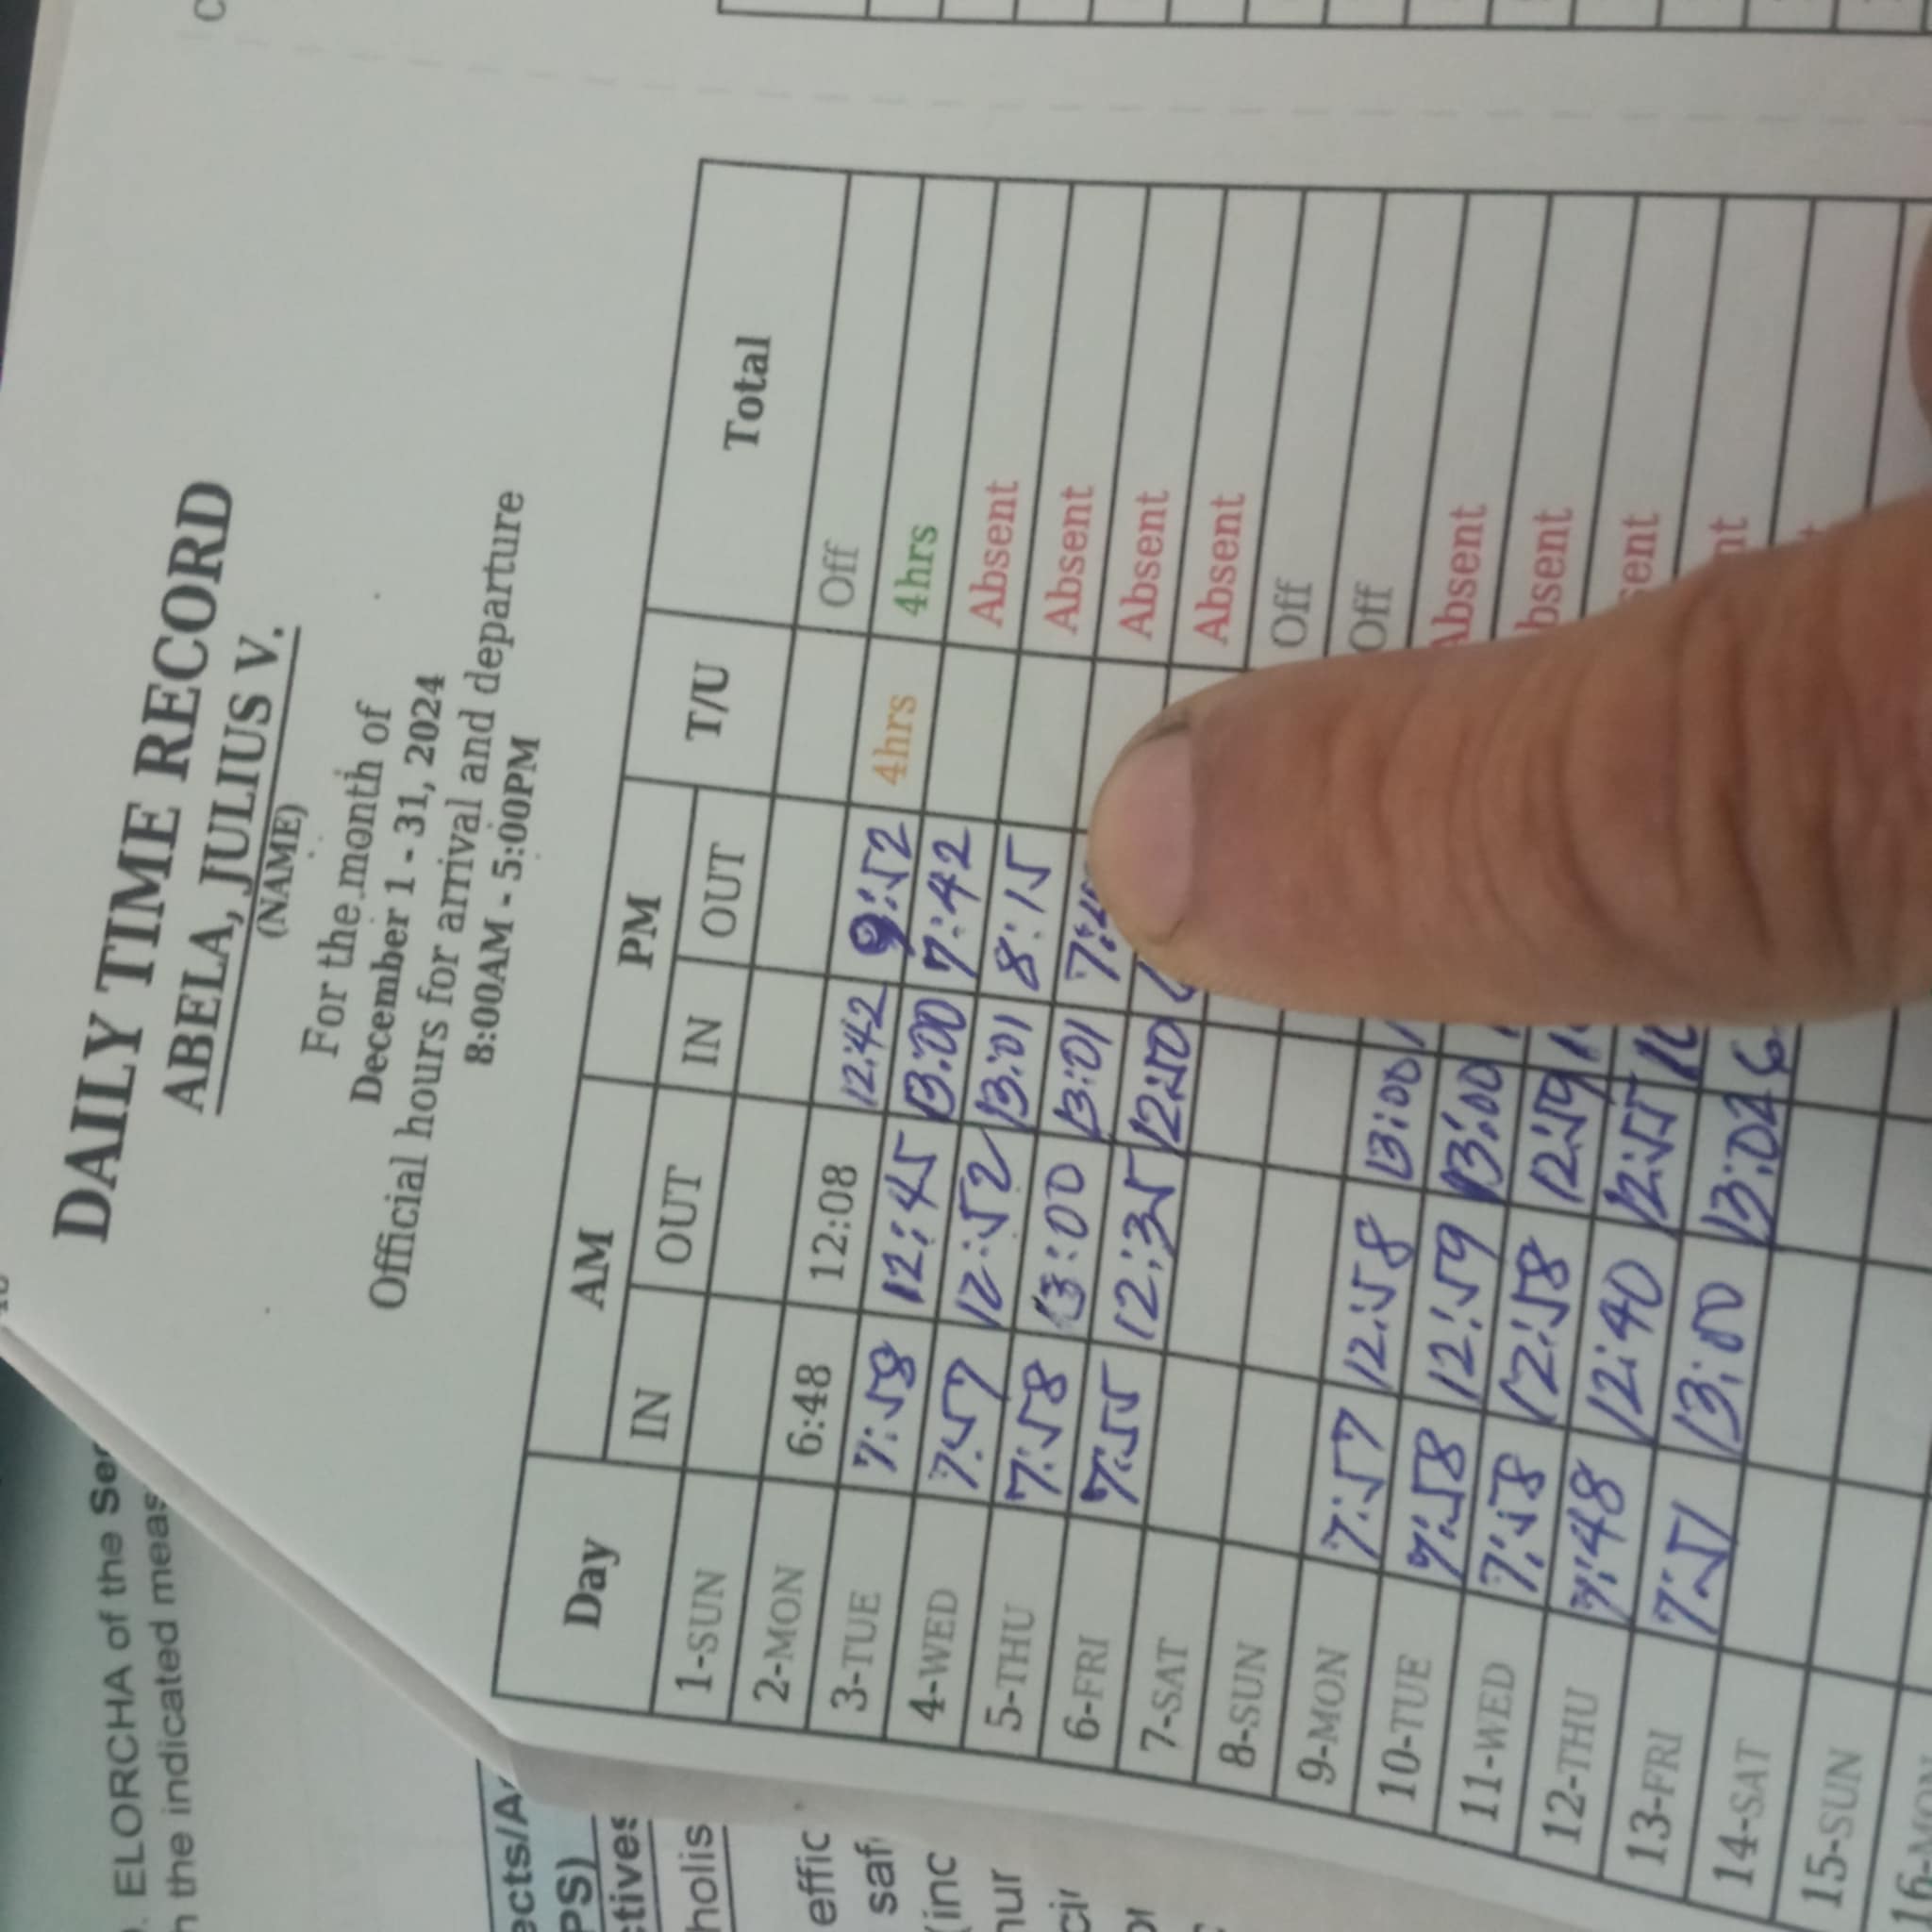 DAILY TIME RECORD
ABELA, JULIUS V.
(NAME)
For the month of
December 1 - 31, 2024
Official hours for arrival and departure
8:00AM - 5:00PM
Day AM PM T/U Total
IN OUT IN OUT
1-SUN Off
2-MON 6:48 12:08 12:42 9:52 4hrs 4hrs
3-TUE 7:58 12:45 13:00 7:42 Absent
4-WED 7:57 12:52 13:01 8:15 Absent
5-THU 7:58 13:00 13:01 Absent
6-FRI 7:55 12:35 12:50 Absent
7-SAT Off
8-SUN Off
9-MON 7:57 12:58 13:00 Absent
10-TUE 7:58 12:59 13:00 bsent
11-WED 7:58 12:58 12:59 sent
12-THU 7:48 12:40 12:55 nt
13-FRI 7:51 13:00 13:02
14-SAT
15-SUN
ELORCHA of the Ser
the indicated meas
ects/A
PS)
ctives
holis
effic
saf
(inc